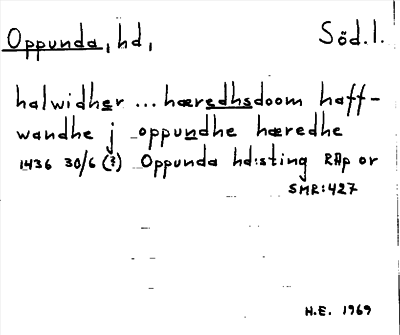 Oppunda, hd, Söd.l.
halwidher ... hæredhsdoom haff-
wandhe j oppundhe hæredhe
1436 30/6 (?) Oppunda hd:sting RAp or
SMR:427
H.E. 1969